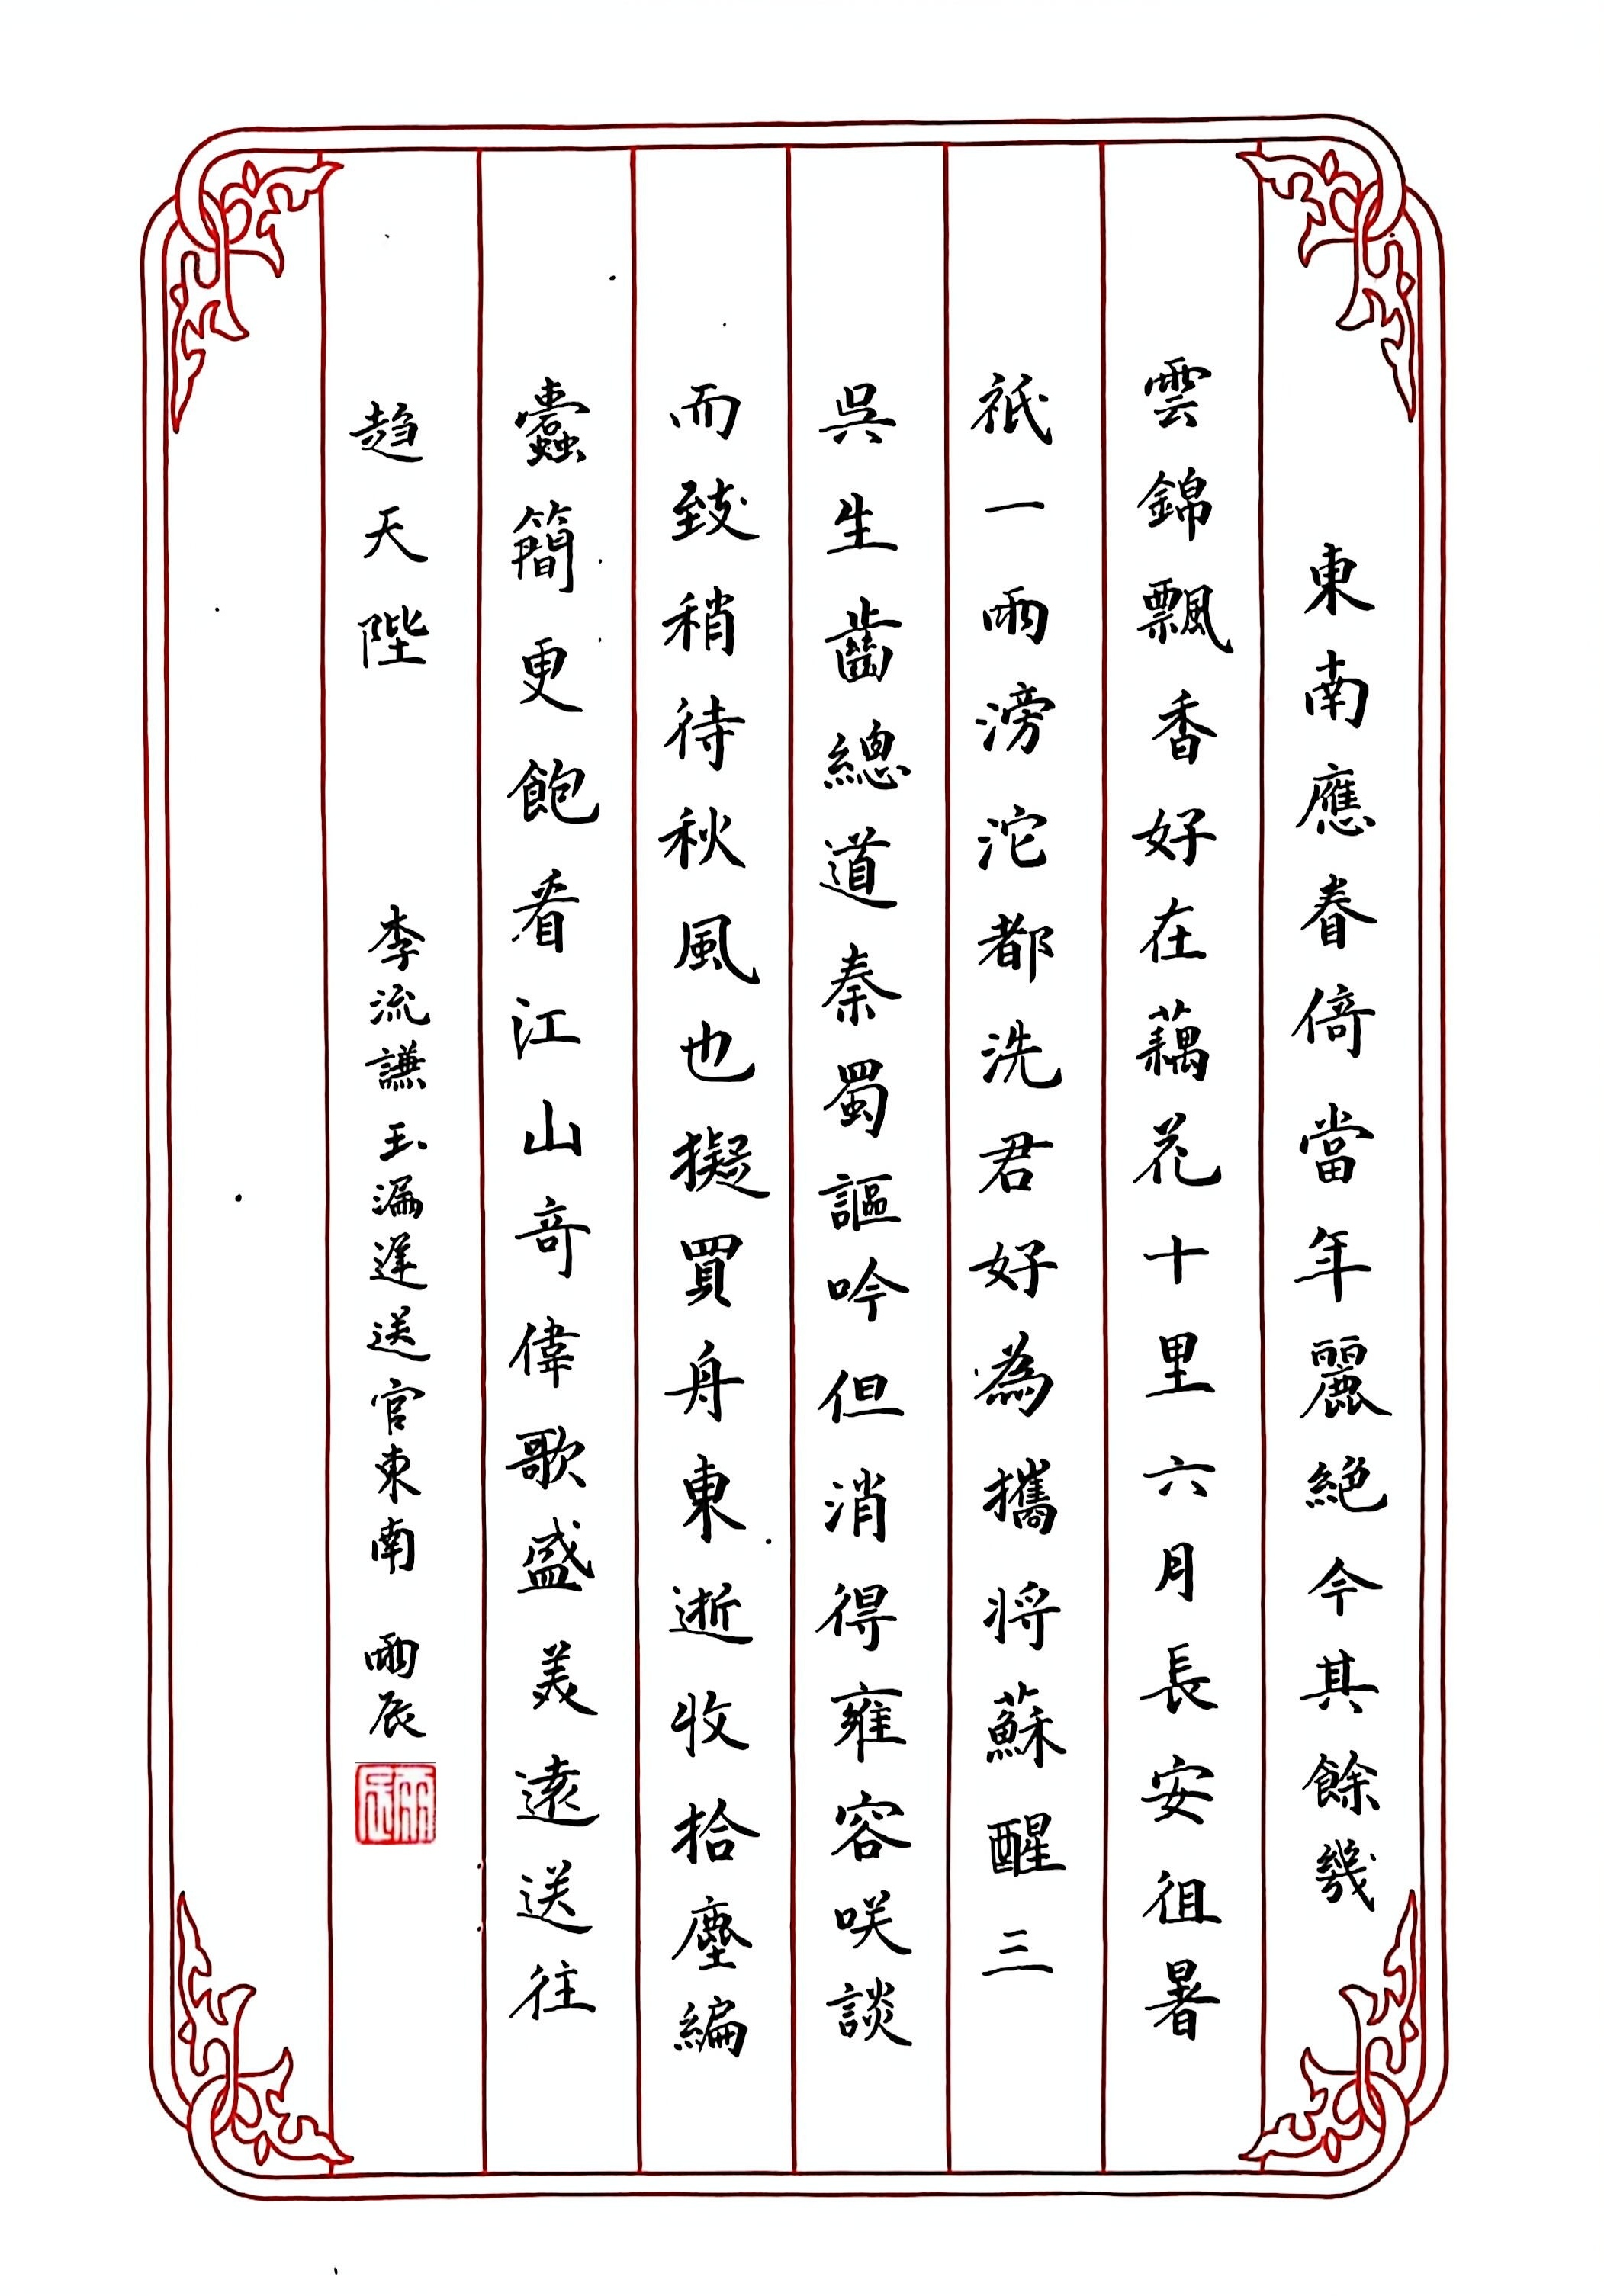 東南應眷倚當年麗絕今其餘幾
雲錦飄香好在藕花十里六月長安徂暑
祇一雨滂沱都洗君好為攜將蘇醒三
吳生齒總道秦蜀謳吟但消得雍容咲談
而致稍待秋風也擬買舟東逝收拾塵編
蠹簡更飽看江山奇偉歌盛美遠送往
趋天陛
李流謙玉漏遲送官東南 雨辰
雨辰